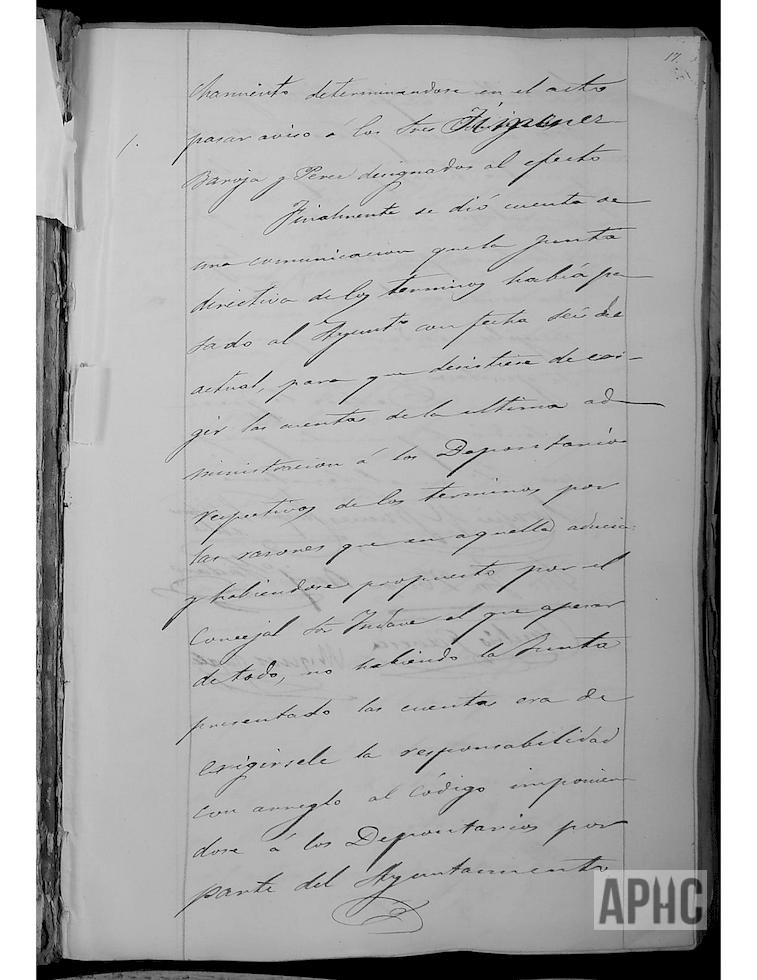 17.
chamiento determinandose en el acto
pasar aviso á los tres
1.
Baroja y Perez designados al efecto
Finalmente se dió cuenta de
una comunicacion que la Junta
directiva de los terminos habia pa
sado al Ayunto con fecha seis del
actual, para que desistiese de exi-
gir las cuentas de la ultima ad
ministracion á los Depositarios
respectivos de los terminos por
las rasones que en aquella aducia
y habiendose propuesto por el
Concejal Sor el que apesar
de todo, no habiendo la Junta
presentado las cuentas era de
exigirsele la responsabilidad
con arreglo al Código imponien
dose á los Depositarios por
parte del Ayuntamiento
APHC